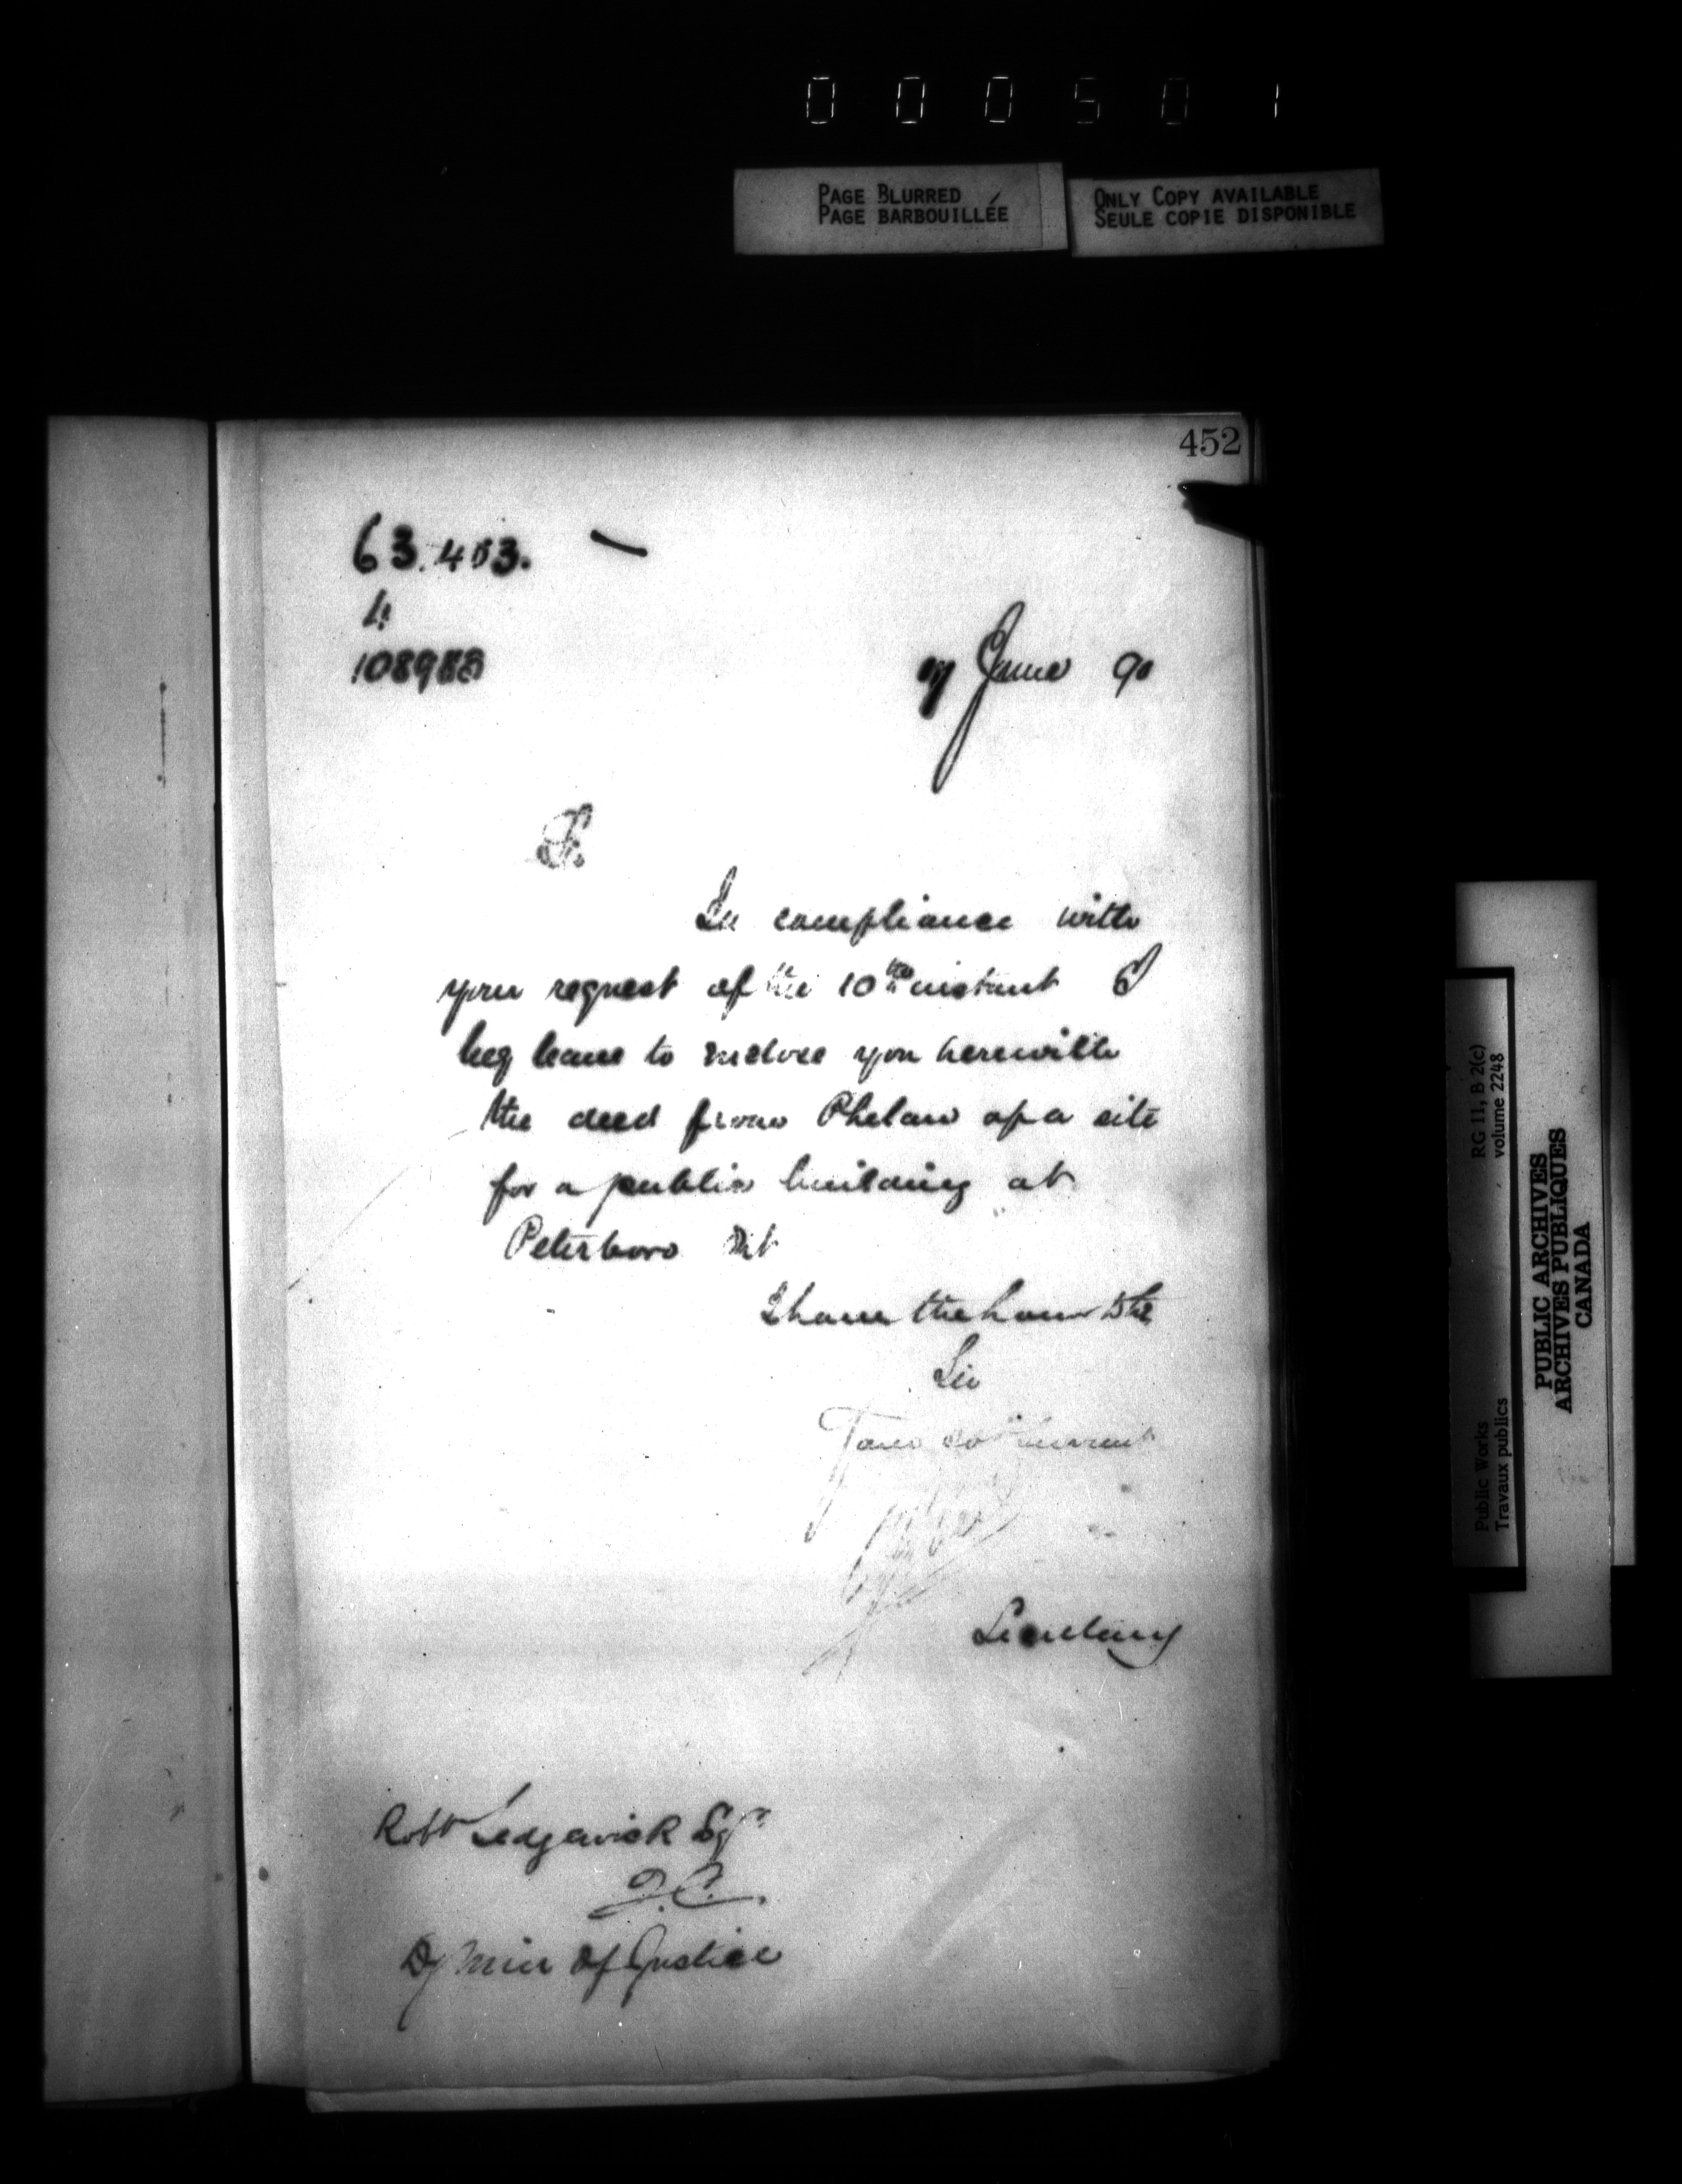 000501
PAGE BLURRED
PAGE BARBOUILLÉE
ONLY COPY AVAILABLE
SEULE COPIE DISPONIBLE
452
63.453.
108988
June 90
In compliance with
your request of the 10th instant I
beg leave to enclose you herewith
the deed from Phelan of a site
for a public building at
Peterboro Ont
I have the honor to be
Sir
Your obt servant
Secretary
Robt Sedgewick Esqr
Q.C.
Dy Min of Justice
RG 11, B 2(c)
volume 2248
Public Works
Travaux publics
PUBLIC ARCHIVES
ARCHIVES PUBLIQUES
CANADA